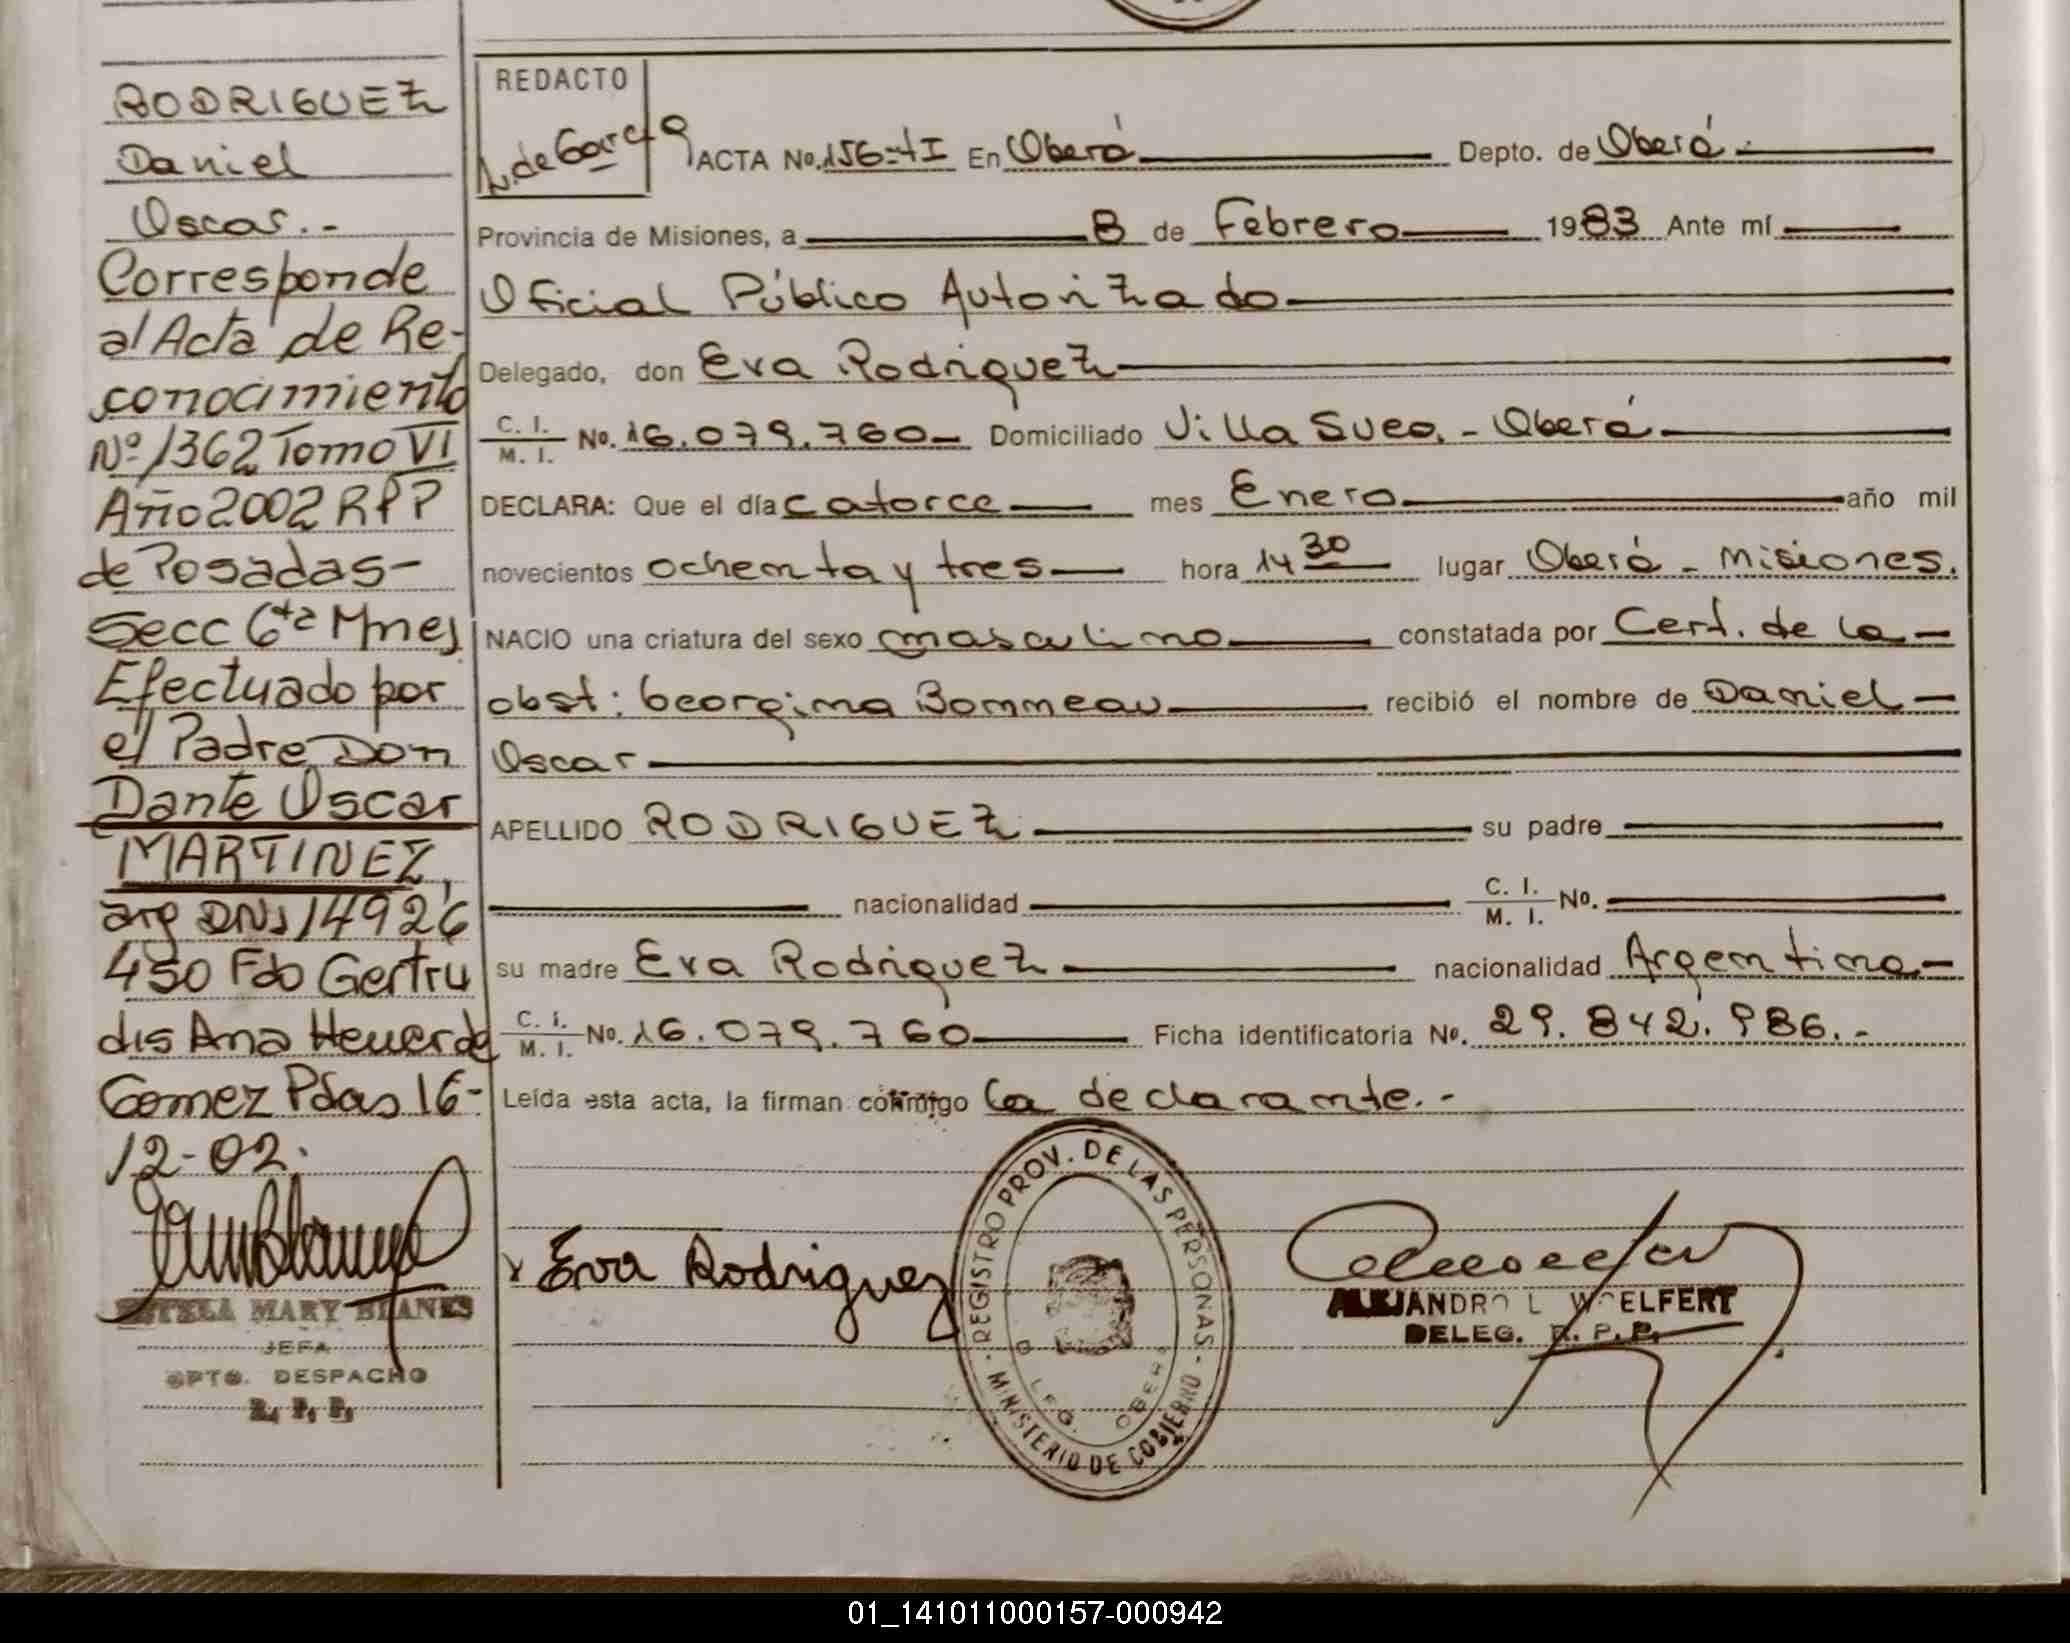 RODRIGUEZ
Daniel
Oscar.-
Corresponde
al Acta de Re-
conocimiento
Nº 1362 Tomo VI
Año 2002 RPP
de Posadas-
Secc 6ta Mnes
Efectuado por
el Padre Don
Dante Oscar
MARTINEZ,
arg DNI 14926
450 Fdo Gertru
dis Ana
Gomez Pdas 16-
12-02.
ESTELA MARY BLANES
JEFA
DPTO. DESPACHO
R. P. P.
REDACTO
L. de Garcia
ACTA No. 156-tI En Oberá Depto. de Oberá.
Provincia de Misiones, a 8 de Febrero 1983 Ante mí
Oficial Público Autorizado
Delegado, don Eva Rodriguez
C. I. / M. I. No. 16.079.760- Domiciliado Villa Svea.- Oberá
DECLARA: Que el día catorce mes Enero año mil
novecientos ochenta y tres hora 14 30 lugar Oberá - Misiones.
NACIO una criatura del sexo masculino constatada por Cert. de la
obst: Georgina Bonneau recibió el nombre de Daniel
Oscar
APELLIDO RODRIGUEZ su padre
nacionalidad C. I. / M. I. No.
su madre Eva Rodriguez nacionalidad Argentina
C. I. / M. I. No. 16.079.760 Ficha identificatoria No. 29.842.986.-
Leída esta acta, la firman conmigo la declarante.-
x Eva Rodriguez
REGISTRO PROV. DE LAS PERSONAS - MINISTERIO DE GOBIERNO -
OBERA
ALEJANDRO L WOELFERT
DELEG. R. P. P.
01_141011000157-000942